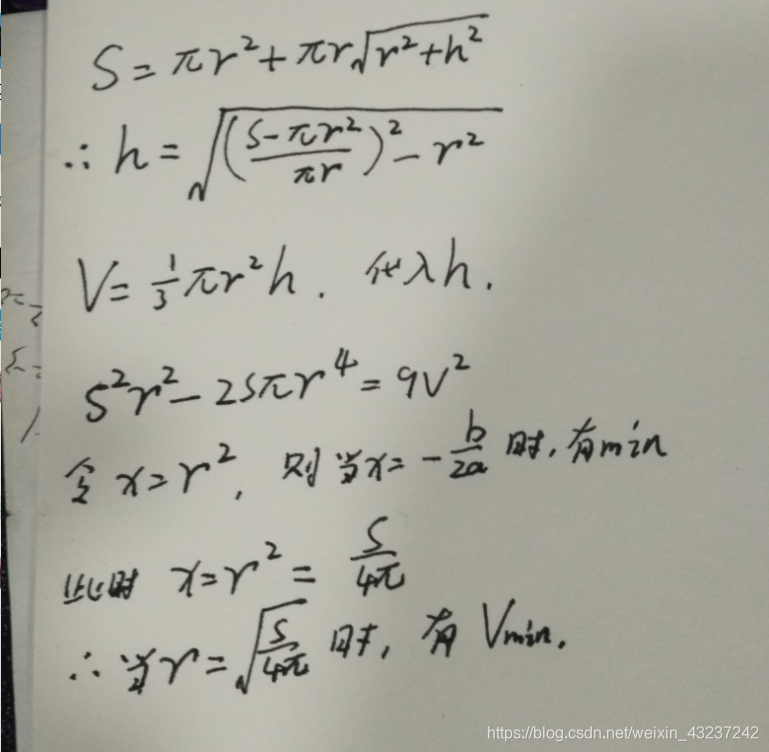 S = πr² + πr√(r²+h²)
∴ h = √((S-πr²/πr)² - r²)
V = 1/3 πr²h. 代入h.
S²r² - 2Sπr⁴ = 9V²
令 x=r², 则当x= -b/2a 时, 有min
此时 x=r² = S/4π
∴ 当r=√(S/4π) 时, 有 Vmin.
https://blog.csdn.net/weixin_43237242